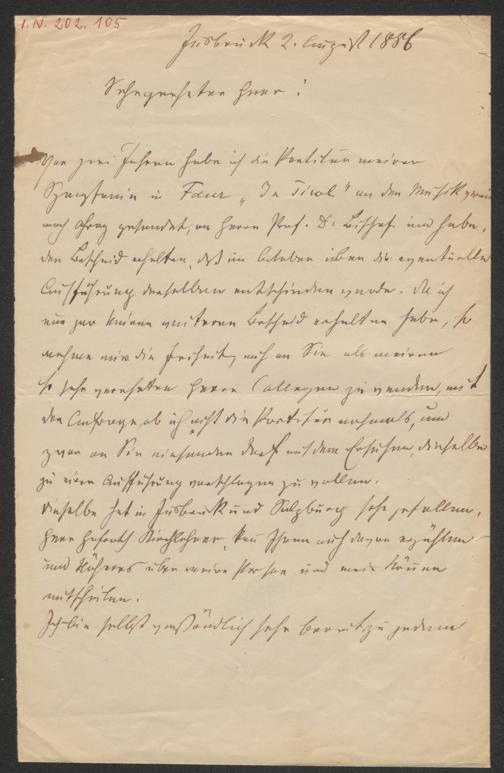 I.N. 202.105
Innsbruck 2. August 1886
Sehrgeehrter Herr!
Vor zwei Jahren habe ich die Partitur meiner
Symphonie in F dur „In Tirol" an den Musikverein
nach Graz gesendet, an Herrn Prof. Dr. Bischof und habe,
den Bescheid erhalten, daß im October über die eventuelle
Aufführung derselben entschieden werde. Da ich
nun gar keinen weiteren Bescheid erhalten habe, so
nehme mir die Freiheit, mich an Sie als meinen
so sehr verehrten Herrn Collegen zu wenden, mit
der Anfrage, ob ich nicht die Partitur nochmals, und
zwar an Sie einsenden darf mit dem Ersuchen, dieselbe
zu einer Aufführung vorschlagen zu wollen.
Dieselbe hat in Innsbruck und Salzburg sehr gefallen,
Herr Hofrath kann Ihnen auch davon erzählen
und Näheres über meine Person und mein Können
mittheilen.
Ich bin selbst verständlich sehr bereit zu jedem